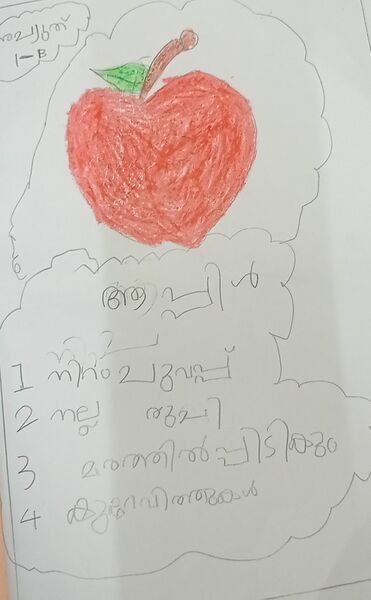 1-B
ആപ്പിൾ
1 നിറം ചുവപ്പ്
2 നല്ല രുചി
3 മരത്തിൽ പ്പിടികും
4 കുറെവിത്തുകൾ